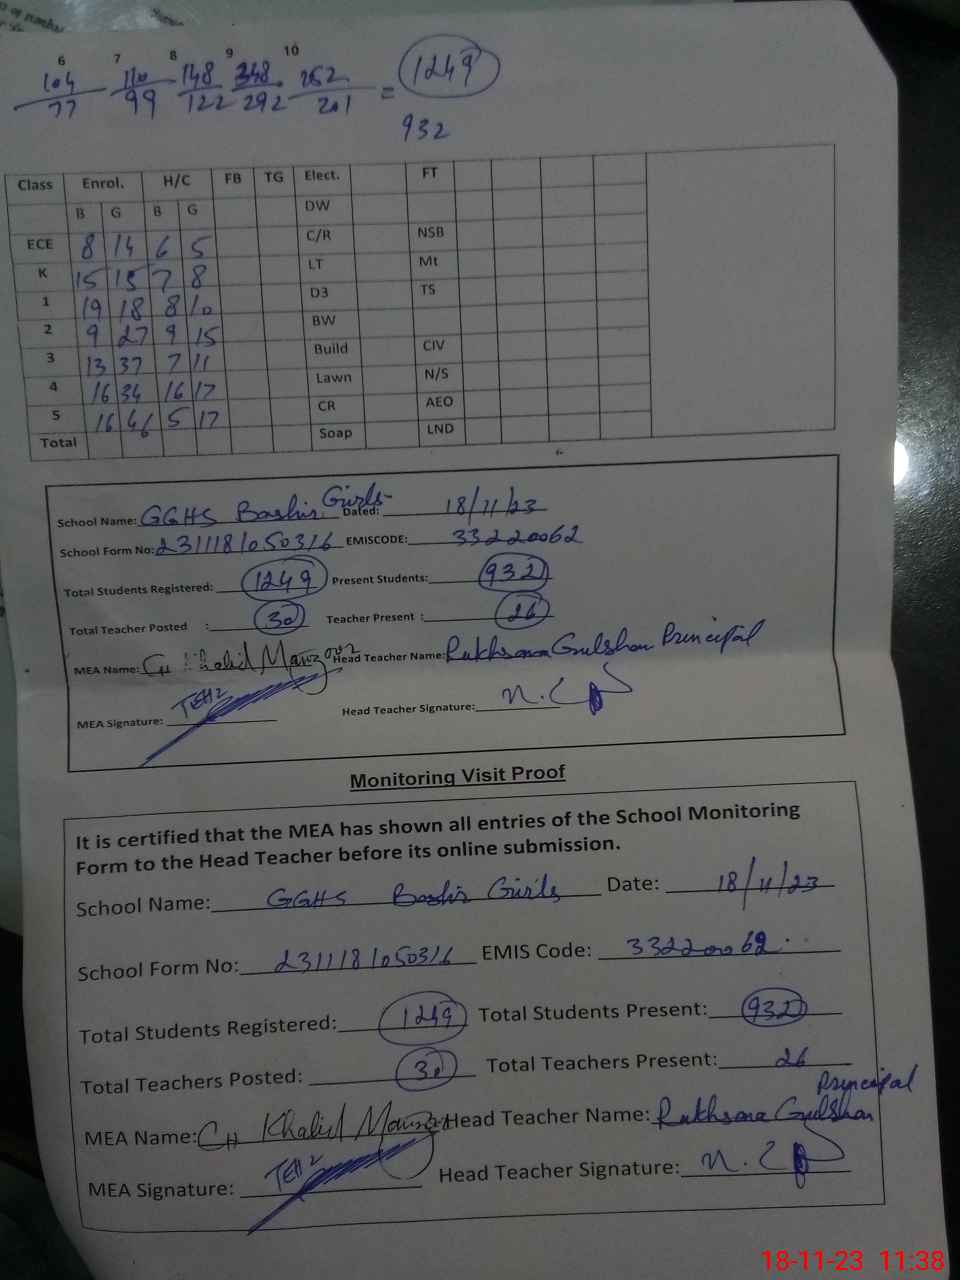 6 7 8 9 10
104 110 148 348 252
77 99 122 292 201 = 1249
932
Class Enrol. H/C FB TG Elect. FT
B G B G DW
ECE 8 14 6 5 C/R NSB
K 15 15 7 8 LT Mt
1 19 18 8 10 D3 TS
2 9 27 9 15 BW
3 13 37 7 11 Build CIV
4 16 34 16 17 Lawn N/S
5 16 46 5 17 CR AEO
Total Soap LND
School Name: GGHS Bashir Girls Dated: 18/11/23
School Form No: 231118/050316 EMISCODE: 33220062
Total Students Registered: 1249 Present Students: 932
Total Teacher Posted : 30 Teacher Present : 26
MEA Name: CH Khalid Manzoor Head Teacher Name: Rukhsana Gulshan Principal
MEA Signature: TEH2 Head Teacher Signature:
Monitoring Visit Proof
It is certified that the MEA has shown all entries of the School Monitoring
Form to the Head Teacher before its online submission.
School Name: GGHS Bashir Girls Date: 18/11/23
School Form No: 231118/050316 EMIS Code: 33220062
Total Students Registered: 1249 Total Students Present: 932
Total Teachers Posted: 30 Total Teachers Present: 26
Principal
MEA Name: CH Khalid Manzoor Head Teacher Name: Rukhsana Gulshan
MEA Signature: TEH2 Head Teacher Signature:
18-11-23 11:38